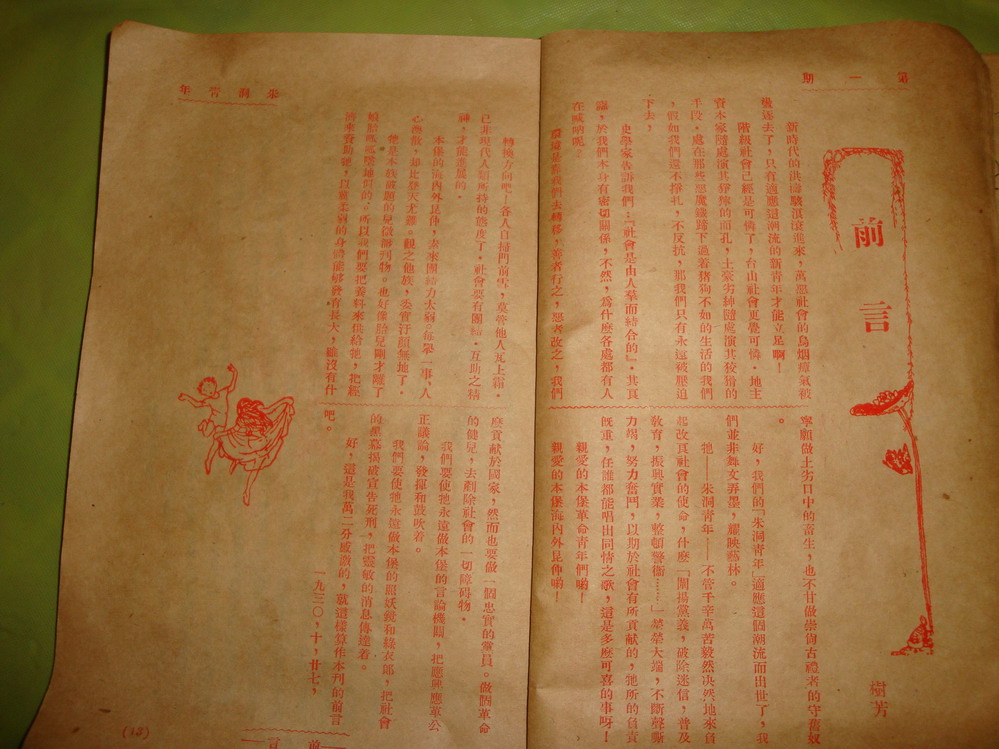 第一期
前言
樹芳
新時代的洪濤駿浪滾進來，萬惡社會的烏烟瘴氣被
後逐去了，只有適應這潮流的新青年才能立足啊！
階級社會已經是可憐了，台山社會更覺可憐。地主
資本家隨處演其猙獰的面孔，土豪劣紳隨處演其狡猾的
手段，處在那些惡魔鐵蹄下過着豬狗不如的生活的我們
，假如我們還不掙扎，不反抗，那我們只有永遠被壓迫
下去，
史學家告訴我們：『社會是由人羣而結合的』。其良
窳，於我們本身有密切關係，不然，爲什麽各處都有人
在吶喊呢？
環境是靠我們去轉移，善者行之，惡者改之，我們
寧願做土劣口中的畜生，也不甘做崇尙古禮者的守舊奴
。
好，我們的「朱洞青年」適應這個潮流而出世了，我
們並非舞文弄墨，耀映藝林。
牠——朱洞青年——不管千辛萬苦毅然决然地來負
起改良社會的使命，什麽「闡揚黨義，破除迷信，普及
教育，振興實業，整頓警衛……」犖犖大端，不斷聲嘶
力竭，努力奮鬥，以期於社會有所貢献的，牠所的負責
旣重，任誰都能唱出同情之歌，這是多麽可喜的事呀！
親愛的本堡革命青年們喲！
親愛的本堡海內外昆仲喲！
朱洞青年
轉換方向吧！各人自掃門前雪，莫管他人瓦上霜，
已非現代人類所持的態度了，社會要有團結，互助之精
神，才能進展的。
本堡的海內外昆仲，素來團結力太弱。每舉一事，人
心渙散，難比登天尤難。觀之他族，委實汗顏無地了。
牠是本族破題的兒微薄刋物。也好像胎兒剛才離了
娘胎呱呱墜地似的，所以我們要把養料來供給牠，把經
濟來資助牠，以資柔弱的身體能够養育長大，雖沒有什
麽貢献於國家，然而也要做一個忠實的黨員。做個革命
的健兒，去剷除社會的一切障碍物。
我們要使牠永遠做本堡的言論機關，把應興應革公
正議論，發揮和鼓吹着。
我們要使牠永遠做本堡的照妖鏡和綠衣郎，把社會
的黑幕揭破宣告死刑，把靈敏的消息傳達着。
好，這是我萬二分感激的，就這樣算作本刋的前言
吧。
一九三〇，十，廿七，
前言
(13)